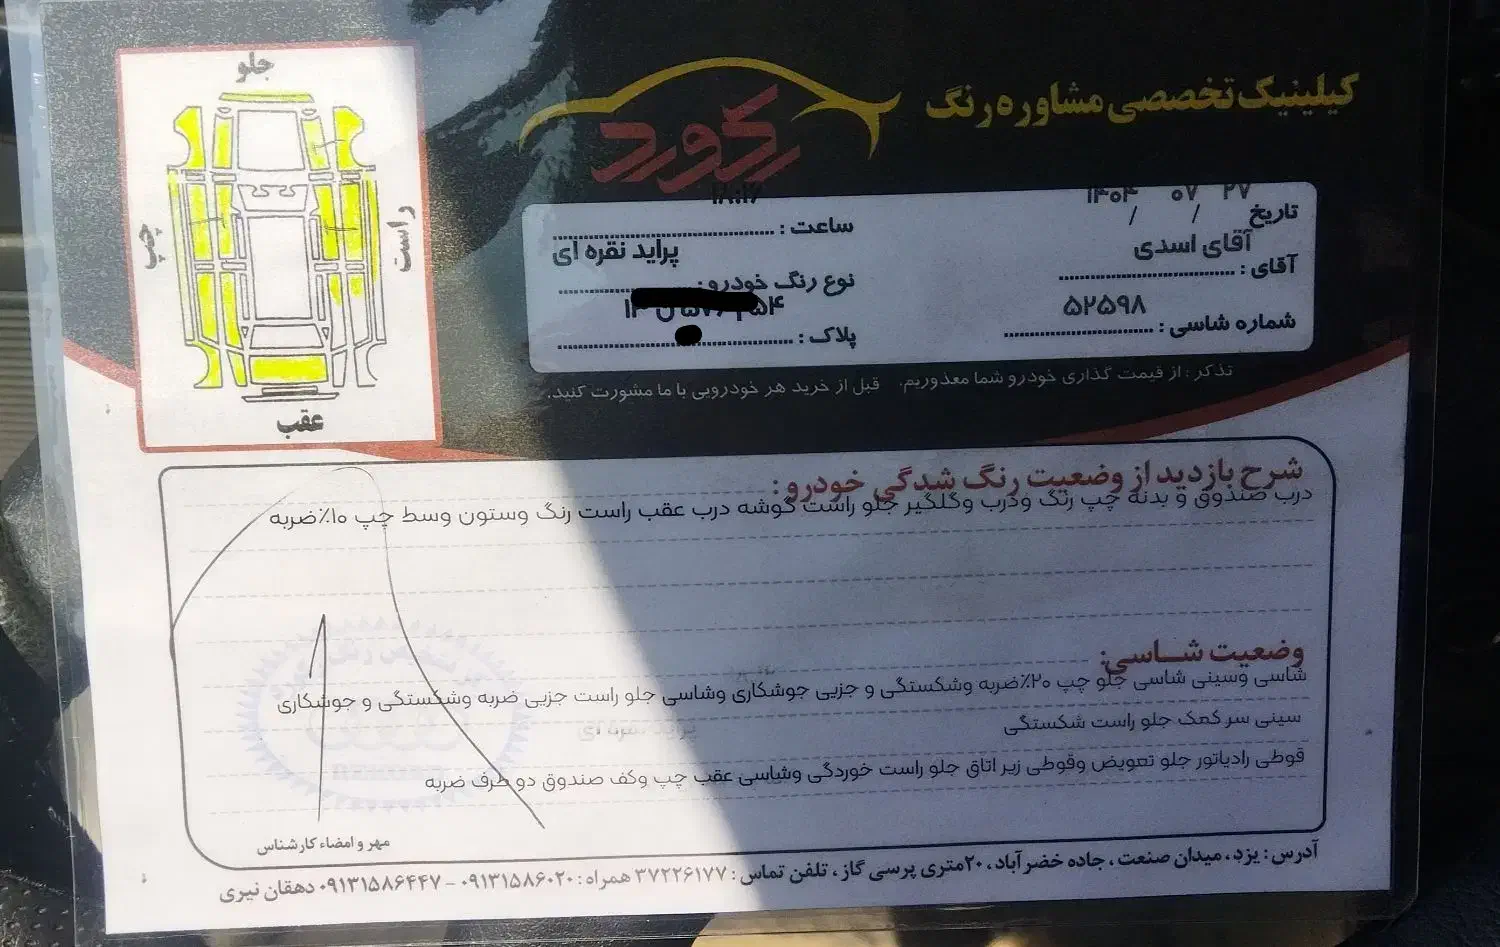 جلو
چپ
راست
عقب
کیلینیک تخصصی مشاوره رنگ
رکورد
تاریخ ۲۷ / ۰۷ / ۱۴۰۴
ساعت : ۱۸:۱۶
آقای : آقای اسدی
نوع رنگ خودرو: پراید نقره ای
شماره شاسی : ۵۲۵۹۸
پلاک :
تذکر : از قیمت گذاری خودرو شما معذوریم. قبل از خرید هر خودرویی با ما مشورت کنید.
شرح بازدید از وضعیت رنگ شدگی خودرو :
درب صندوق و بدنه چپ رنگ ودرب وگلگیر جلو راست گوشه درب عقب راست رنگ وستون وسط چپ ۱۰٪ضربه
وضعیت شاسی:
شاسی وسینی شاسی جلو چپ ۲۰٪ضربه وشکستگی و جزیی جوشکاری وشاسی جلو راست جزیی ضربه وشکستگی و جوشکاری
سینی سر کمک جلو راست شکستگی
قوطی رادیاتور جلو تعویض وقوطی زیر اتاق جلو راست خوردگی وشاسی عقب چپ وکف صندوق دو طرف ضربه
مهر و امضاء کارشناس
آدرس: یزد، میدان صنعت، جاده خضرآباد، ۲۰متری پرسی گاز، تلفن تماس : ۳۷۲۲۶۱۷۷ همراه : ۰۹۱۳۱۵۸۶۰۲۰ - ۰۹۱۳۱۵۸۶۴۴۷ دهقان نیری